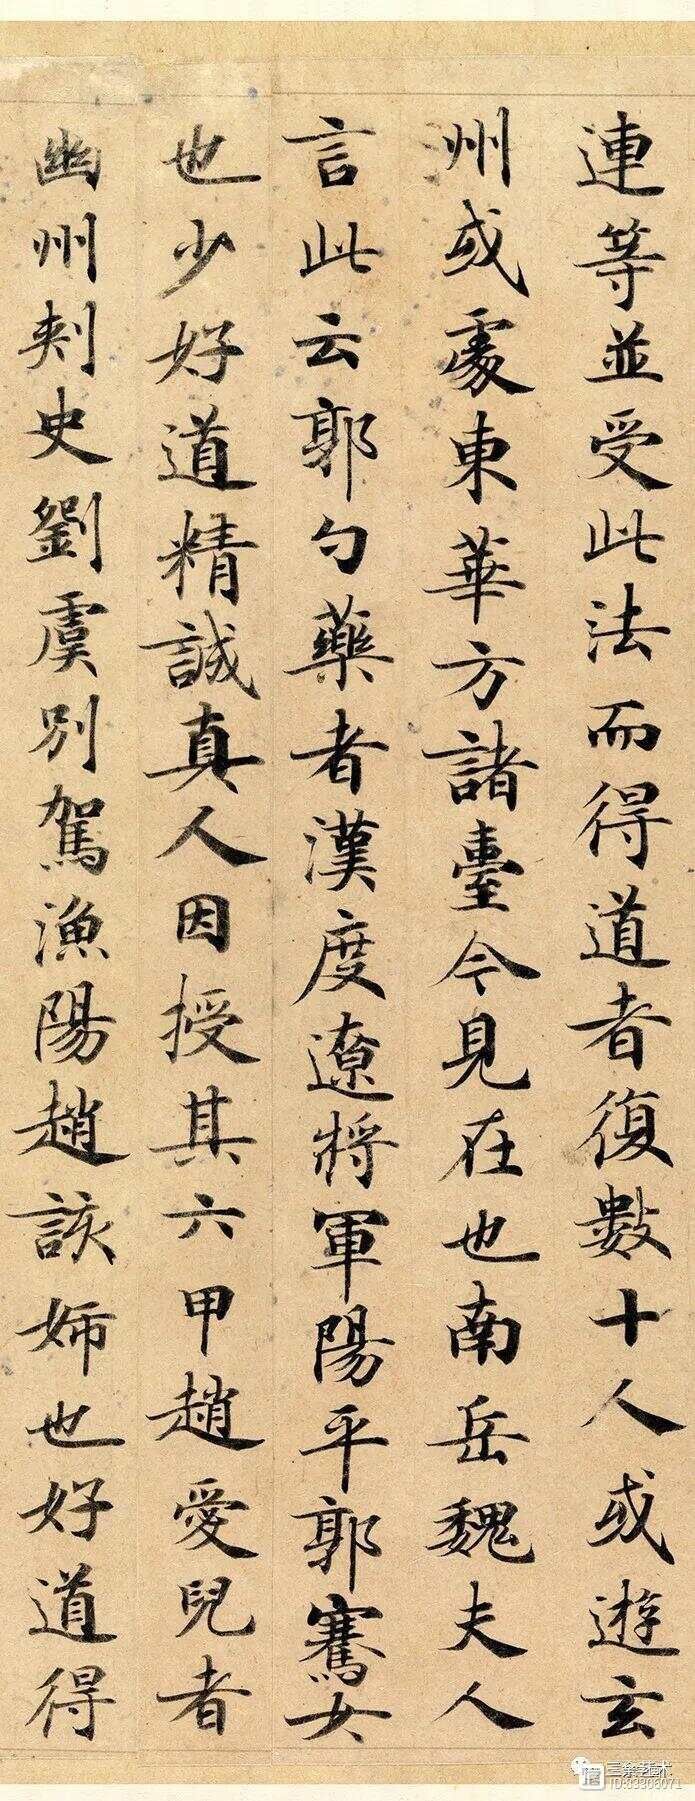 連等並受此法而得道者復數十人或遊玄
州或處東華方諸臺今見在也南岳魏夫人
言此云郭勺藥者漢度遼將軍陽平郭騫女
也少好道精誠真人因授其六甲趙愛兒者
幽州刾史劉虞別駕漁陽趙該姉也好道得
三余艺术
ID:83306071